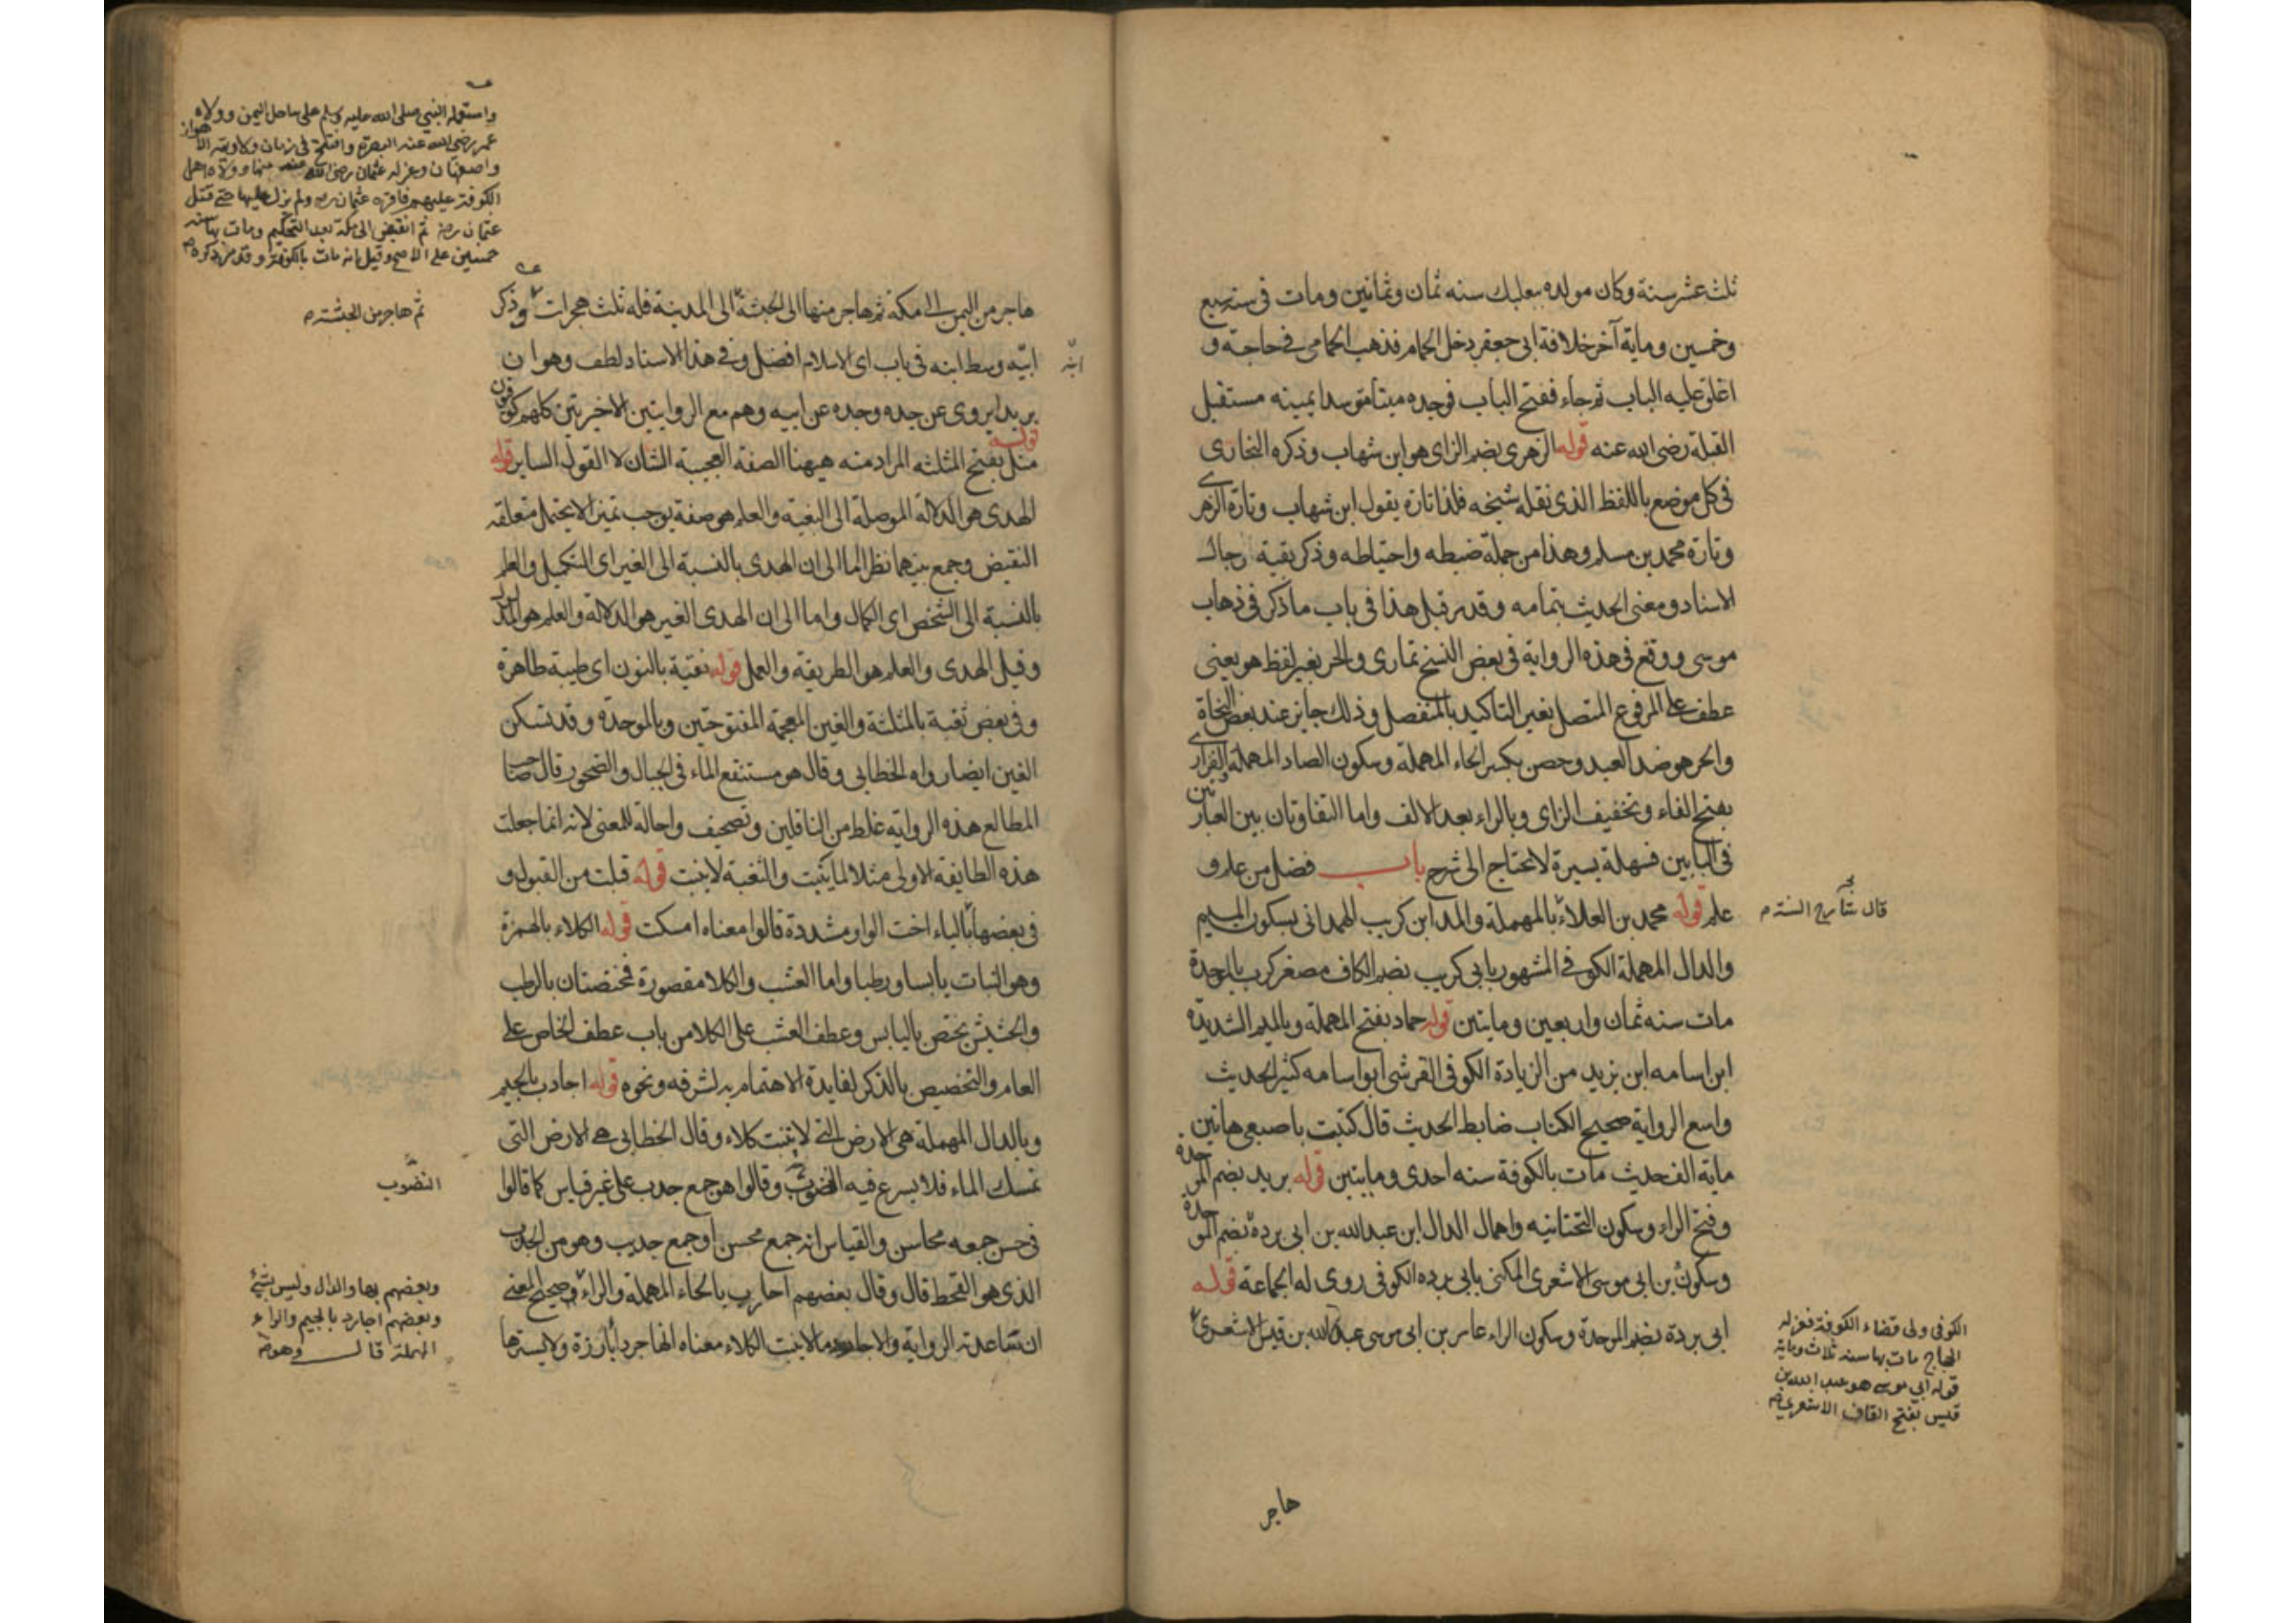 ثلث عشر سنة وكان مولده ببعلبك سنه ثمان وثمانين ومات فى سنه سبع
وخمسين وماية آخر خلافة ابى جعفر دخل الحمام فذهب الحمامى فى حاجة و
اغلق عليه الباب ثم جاء ففتح الباب فوجده ميتا متوسدا يمينه مستقبل
القبلة رضى الله عنه قوله الزهرى بضم الزاى هو ابن شهاب وذكره البخارى
فى كل موضع باللفظ الذى نقله شيخه فلذا تارة يقول ابن شهاب وتارة الزهرى
وتارة محمد بن مسلم وهذا من جملة ضبطه واحتياطه وذكر بقية رجال
الاسناد ومعنى الحديث بتمامه وقد مر قبل هذا فى باب ما ذكر فى ذهاب
موسى ووقع فى هذه الرواية فى بعض النسخ تمارى والحر بغير لفظ هو يعنى
عطف على المرفوع المتصل بغير التاكيد بالمنفصل وذلك جايز عند بعض النحاة
والحر هو ضد العبد وحصن بكسر الحاء المهملة وسكون الصاد المهملة الفزارى
بفتح الفاء وتخفيف الزاى وبالراء بعد الالف واما التفاوتان بين العبارتين
فى البابين فسهلة يسيرة لا تحتاج الى شرح باب فضل من علم و
علم قوله محمد بن العلاء بالمهملة والمد ابن كريب الهمدانى بسكون الميم
والدال المهملة الكوفى المشهور بابى كريب بضم الكاف مصغر كرب بالموحدة
مات سنه ثمان واربعين ومايتين قوله حماد بفتح المهملة وبالميم الشديدة
ابن اسامه ابن يزيد من الزيادة الكوفى القرشى ابو اسامه كثير الحديث
واسع الرواية صحيح الكتاب ضابط الحديث قال كتبت باصبعى هاتين
ماية الف حديث مات بالكوفة سنه احدى ومايتين قوله بريد بضم الموحدة
وفتح الراء وسكون التحتانيه واهمال الدال ابن عبد الله بن ابى بردة بضم الموحدة
وسكون بن ابى موسى الاشعرى المكنى بابى برده الكوفى روى له الجماعة قوله
ابى بردة بضم الموحدة وسكون الراء عامر بن ابى موسى عبد الله بن قيس الاشعرى
قال شارح السنة
الكوفى ولى قضاء الكوفة فعزله
الحجاج مات بها سنه ثلاث وماية
قوله ابي موسى هو عبد الله بن
قيس بفتح القاف الاشعري
هاجر
واستعمله النبي صلى الله عليه وسلم على ساحل اليمن وولاه
عمر رضى الله عنه البصرة وافتتح فى زمان ولاويته الاهواز
واصفهان وعزله عثمان رضى الله عنه منها وولاه اهل
الكوفة عليهم فاقره عثمان رض ولم يزل عليها حتى قتل
عثمان رض ثم انقبض الى مكة بعد التحكيم ومات بها سنه
خمسين على الاصح وقيل انه مات بالكوفة وقد مر ذكره
ثم هاجر من الحبشة
هاجر من اليمن الى مكة ثم هاجر منها الى الحبشة الى المدينة فله ثلث هجرات وذكر
ابيه وسط ابنه فى باب اى الاسلام افضل وفى هذا الاسناد لطف وهو ان
بريدا يروى عن جده وجده عن ابيه وهم مع الروايتين الاخريتين كلهم كوفيون
قوله مثل بفتح المثلثه المراد منه هيهنا الصفة العجيبة الشان لا القول الساير قوله
الهدى هو الدلالة الموصلة الى البغية والعلم هو صفة يوجب تميزا لا يحتمل متعلقه
النقيض وجمع بينهما نظرا اما الى ان الهدى بالنسبة الى الغير اى التكميل والعلم
بالنسبة الى الشخص اى الكمال واما الى ان الهدى الغير هو الدلالة والعلم هو المدلول
وقيل الهدى والعلم هو الطريقة والعمل قوله نقية بالنون اى طيبة طاهرة
وفى بعض ثغبة بالمثلثة والغين المعجمة المفتوحتين وبالموحدة وقد تسكن
الغين ايضا رواه الخطابى وقال هو مستنقع الماء فى الجبال والصخور قال صاحب
المطالع هذه الرواية غلط من الناقلين وتصحيف واحالة للمعنى لانه انما جعلت
هذه الطايفة الاولى مثلا لما ينبت والثغبة لا ينبت قوله قبلت من القبول و
فى بعضها بالياء اخت الواو مشددة قالوا معناه امسكت قوله الكلاء بالهمزة
وهو النبات يابسا ورطبا واما العشب والكلا مقصورة فمختصتان بالرطب
والحشيش يختص باليابس وعطف العشب على الكلا من باب عطف الخاص على
العام والتخصيص بالذكر لفايدة الاهتمام به لشرفه ونحوه قوله اجادب بالجيم
وبالدال المهملة هى الارض التى لا تنبت كلاء وقال الخطابى هى الارض التى
تمسك الماء فلا يسرع فيه النضوب وقالوا هو جمع جدب على غير قياس كما قالوا
فى حسن جمعه محاسن والقياس انه جمع محسن او جمع جديب وهو من الجدب
الذى هو القحط قال وقال بعضهم احارب بالحاء المهملة والراء وصحيح المعنى
ان تساعدنه الرواية والاجارد ما لا ينبت الكلاء معناه انها جردا بارزة ولا يسترها
ابنه
النضوب
وبعضهم بها والدال وليس بشئ
وبعضهم اجارد بالجيم والراء
المهملة قال وهو